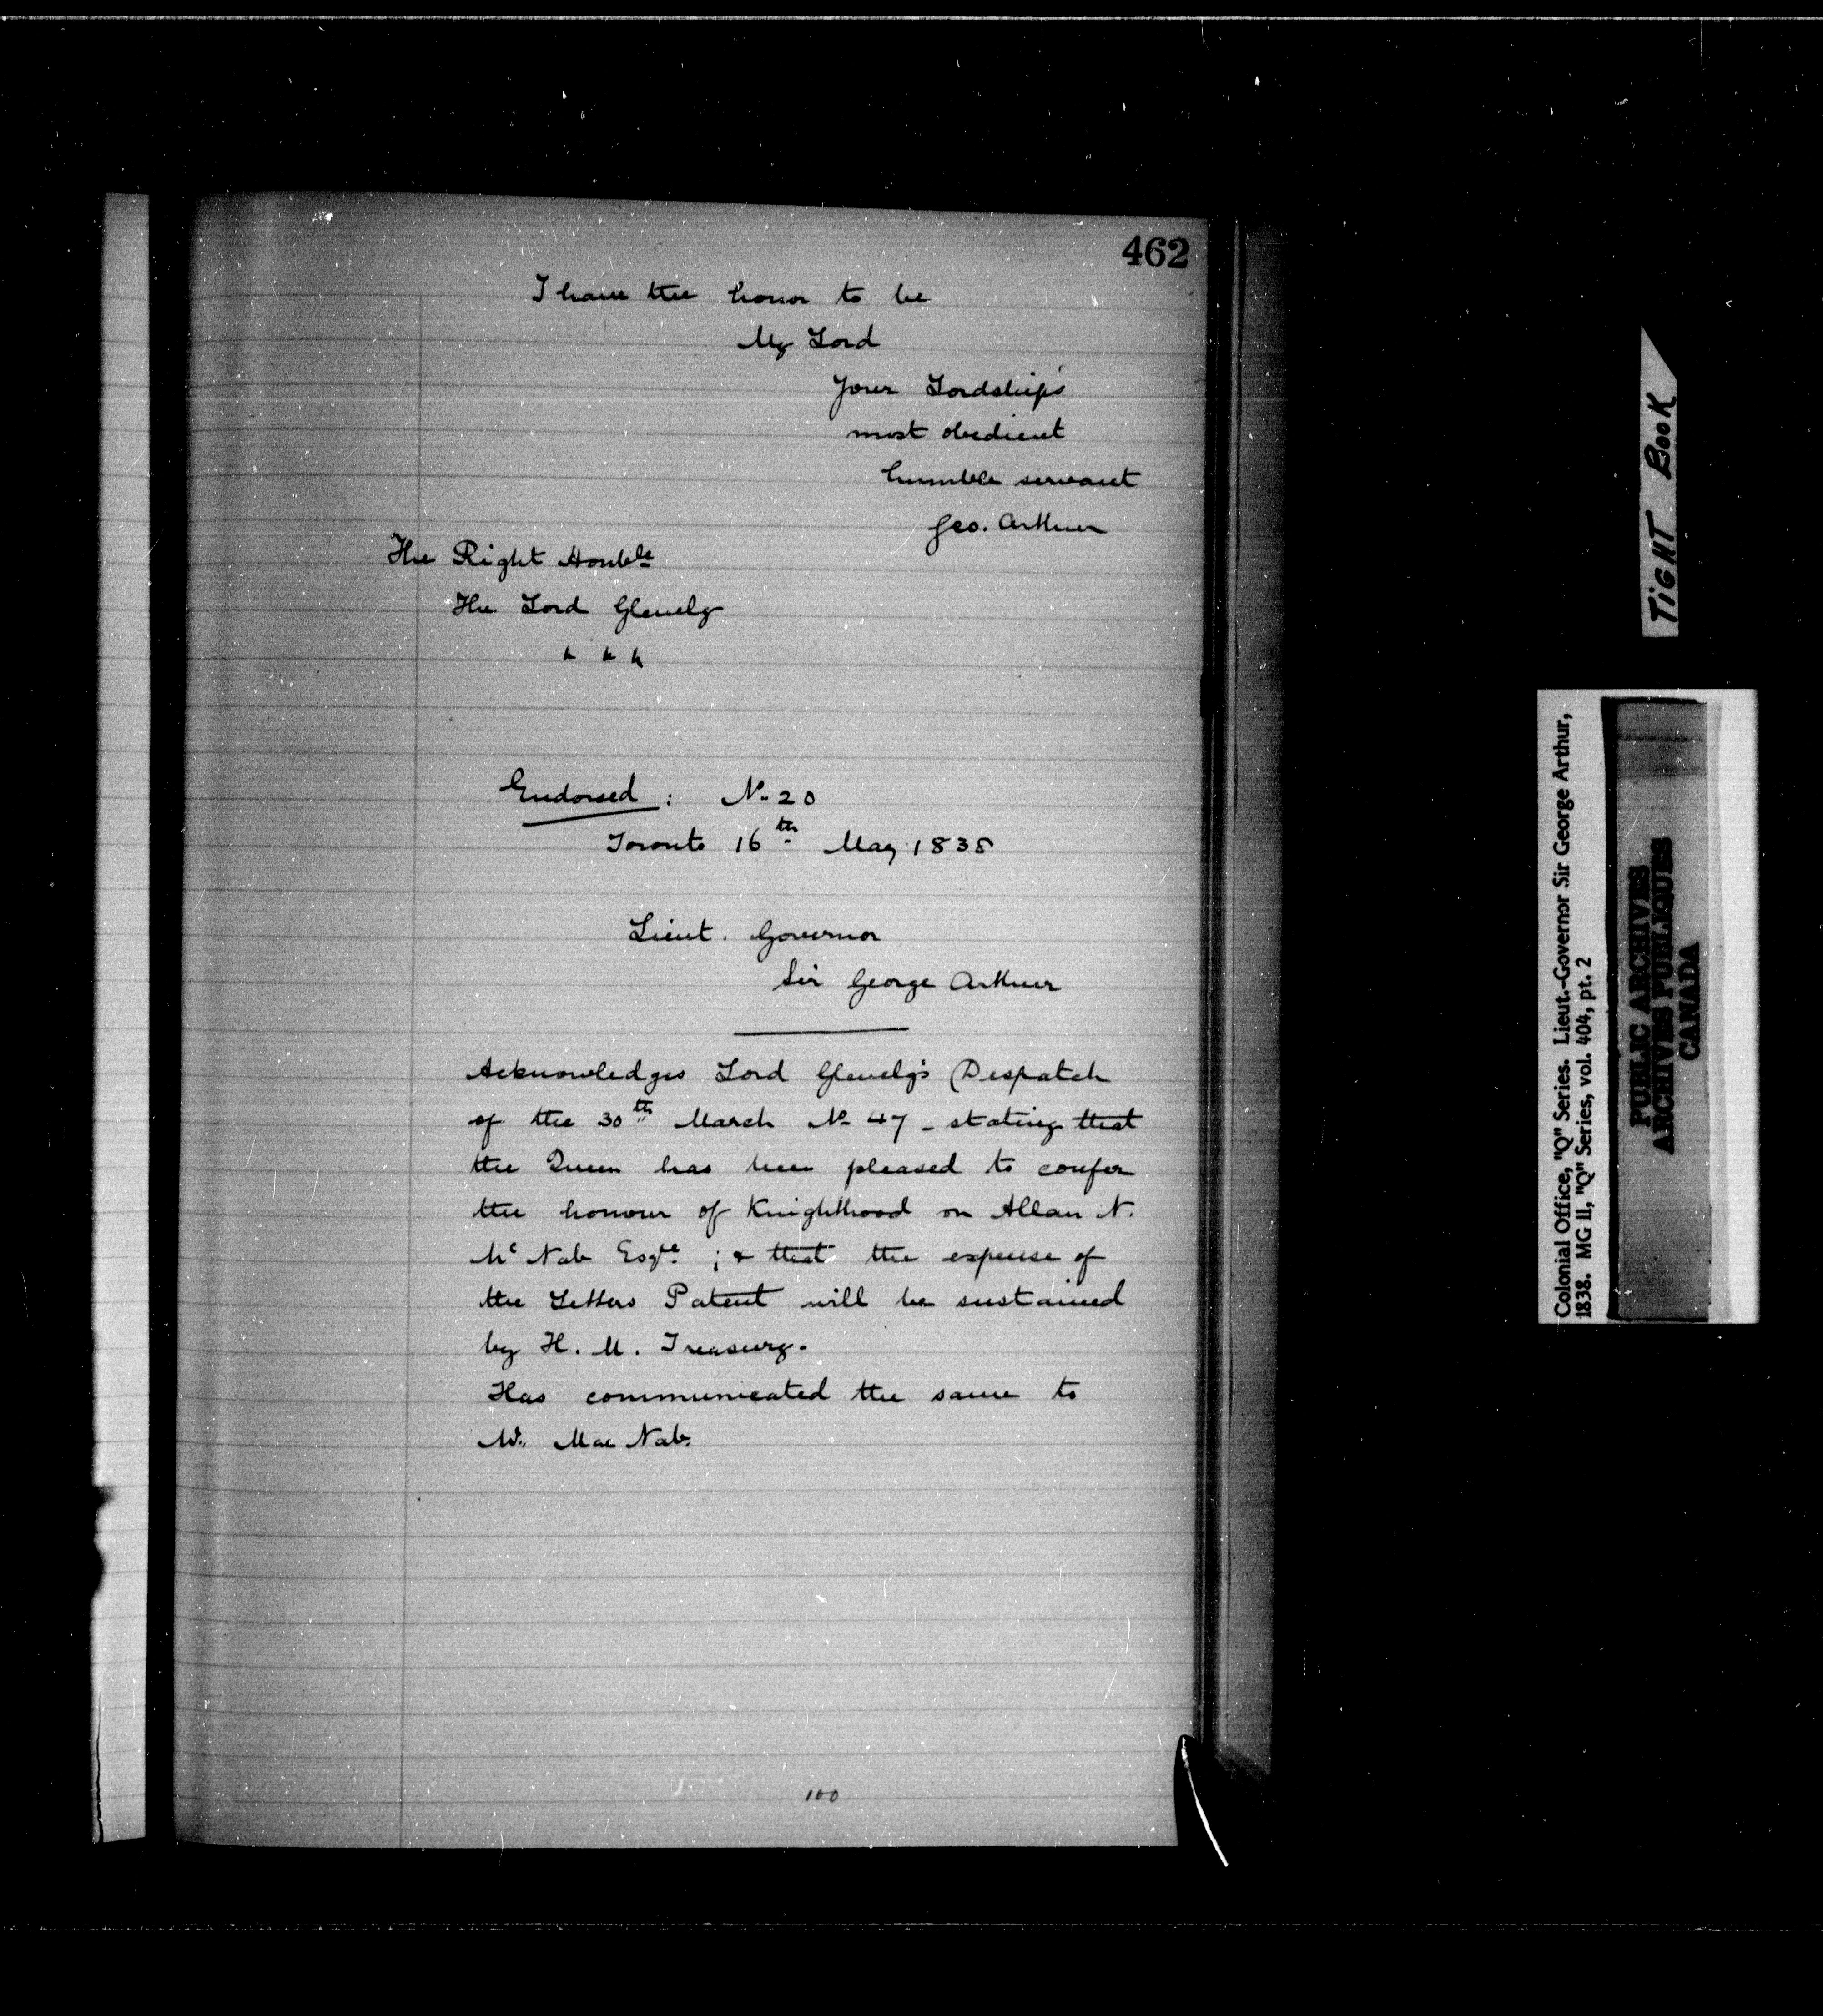 462
I have the honor to be
My Lord
Your Lordship's
most obedient
humble servant
Geo. Arthur
The Right Honble
The Lord Glenelg
Endorsed : No 20
Toronto 16th May 1838
Lieut. Governor
Sir George Arthur
Acknowledges Lord Glenelg's Despatch
of the 30th March No 47 - stating that
the Queen has been pleased to confer
the honour of Knighthood on Allan N.
Mc Nab Esqre ; & that the expense of
the Letters Patent will be sustained
by H. M. Treasury.
Has communicated the same to
Mr. Mac Nab.
100
TIGHT BOOK
Colonial Office, "Q" Series. Lieut.-Governor Sir George Arthur,
1838. MG 11, "Q" Series, vol. 404, pt. 2
PUBLIC ARCHIVES
ARCHIVES PUBLIQUES
CANADA